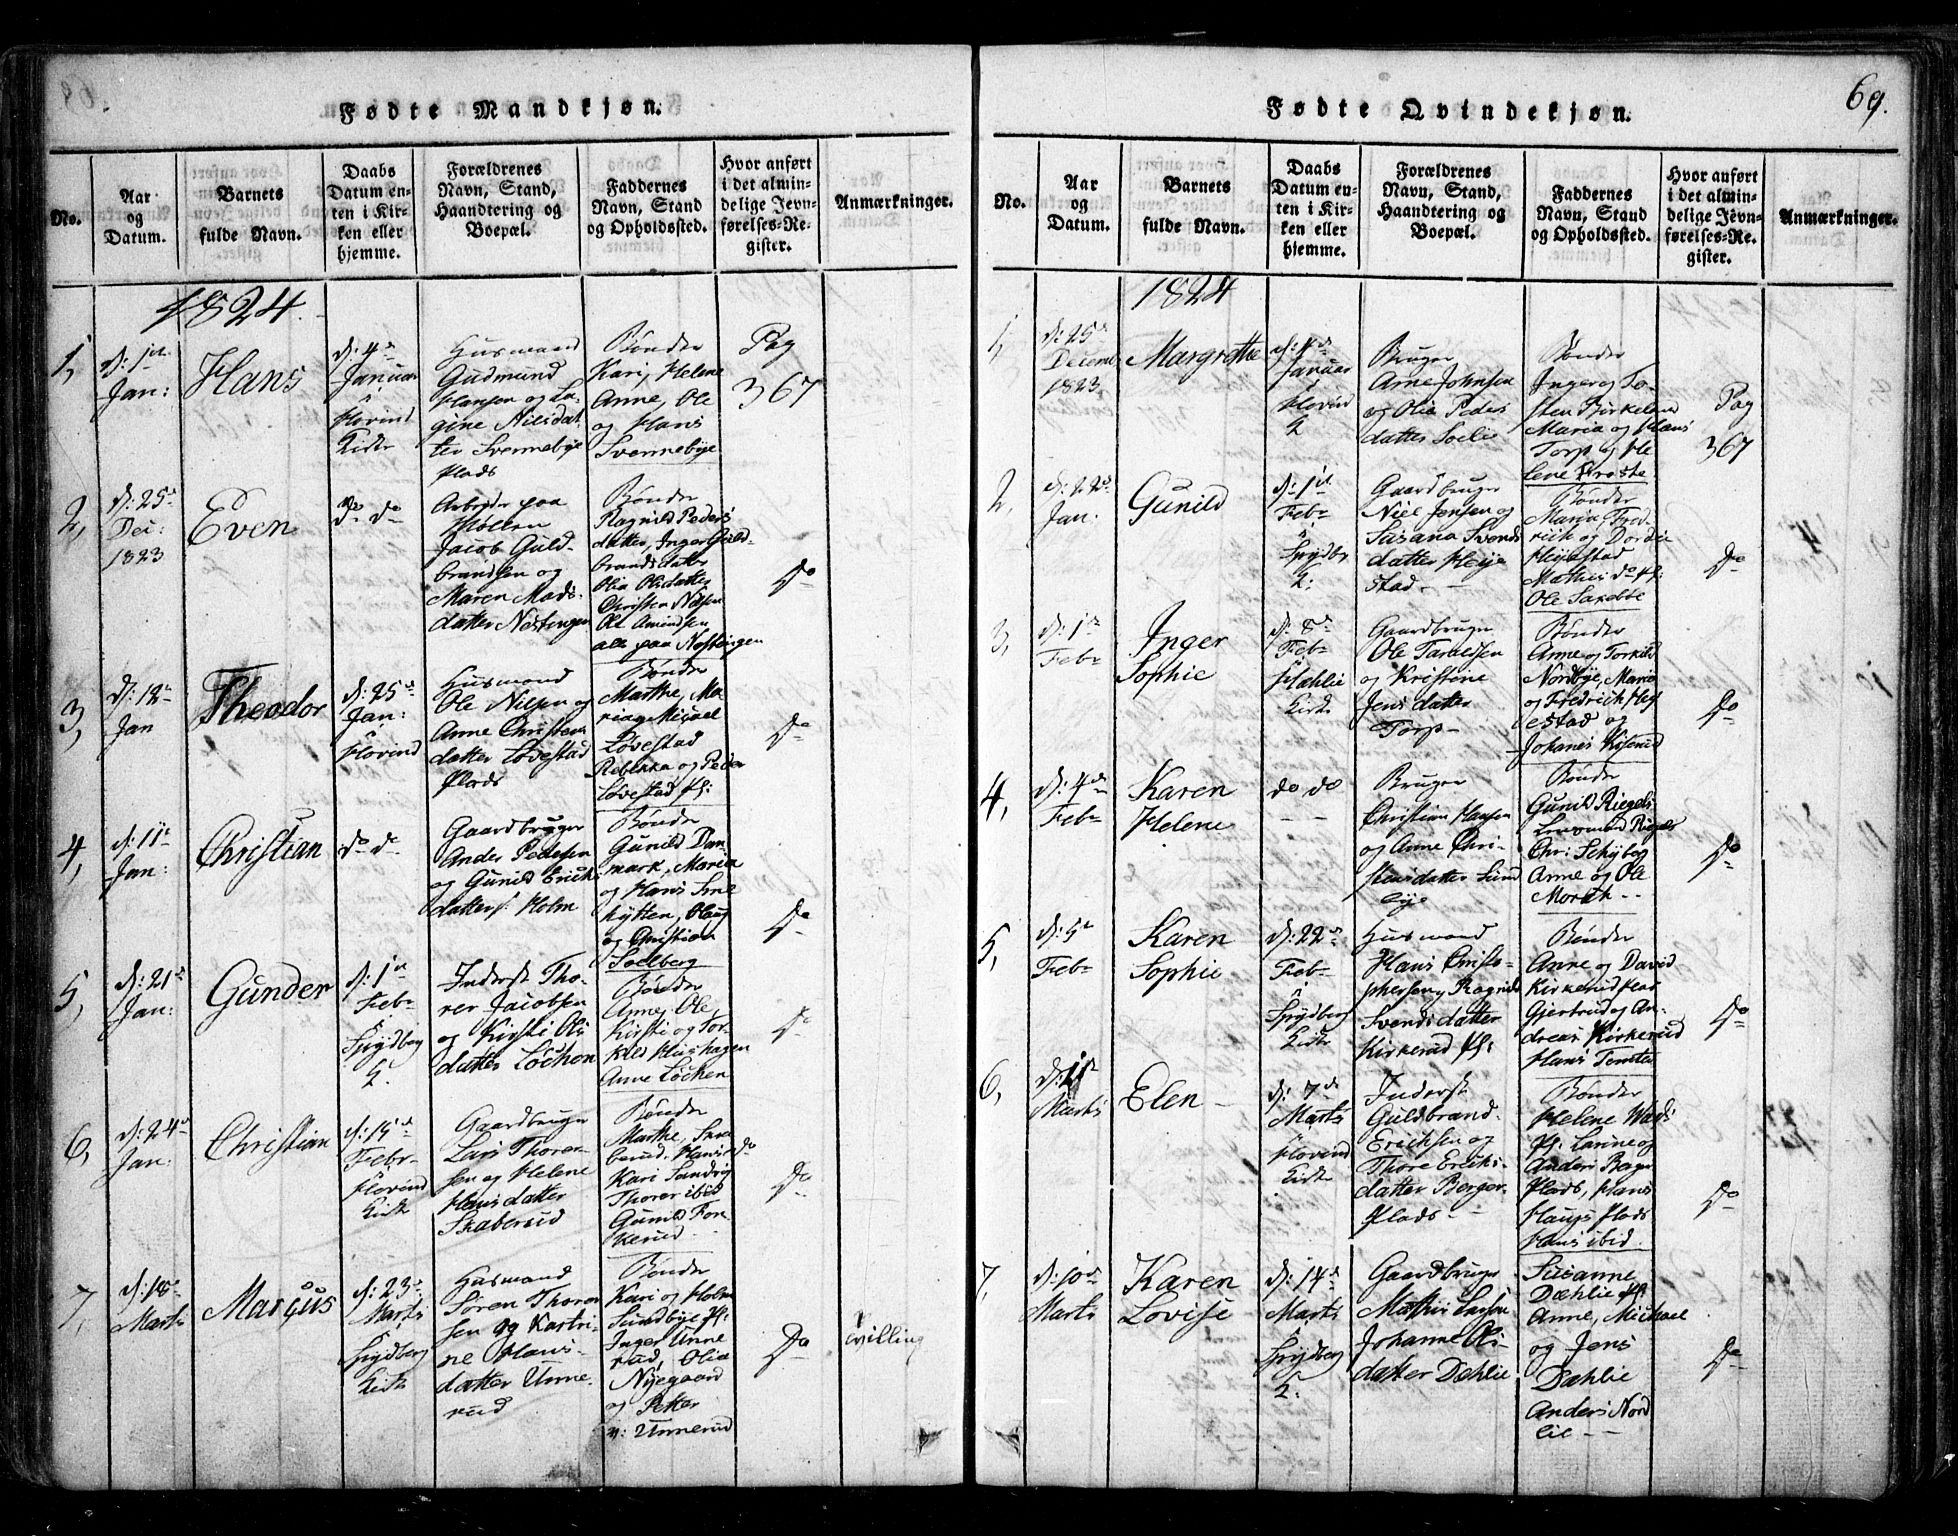 Fødte Mandkjøn.
No.
Aar
og
Datum.
Barnets
fulde Navn.
Daabs
Datum en-
ten i Kir-
ken eller
hjemme.
Forældrenes
Navn, Stand,
Haandtering og
Boepæl.
Faddernes
Navn, Stand
og Opholdssted.
Hvor anført
i det almin-
delige Jevn-
førelses-Re-
gister.
Anmærkninger.
1824.
1,
d: 1ste
Jan:
Hans
d: 4de
Januar
i
Hovind
Kirke
Husmand
Gudmund
Hansen og
Nilsdat-
ter Svennebye
Plads
Bønder
Kari, Helene
Anne, Ole
og Hans
Svennebye
Pag
367
2,
d: 25de
Dec:
1823
Even
do do
Arbejder paa
Jacob Guld-
brandsen og
Maren Mads-
datter Nøstingen
Bønder
Ragnild Peders
datter, Inger Guld-
brandsdatter
Olia Olsdatter
Christen Nilsen
Ole Amundsen
alle paa Nøstingen
Do
3,
d: 12te
Jan
Theodor
d: 25de
Jan:
i
Hovind
Husmand
Ole Nilsen og
Anne Christens
datter Løvestad
Plads
Bønder
Marthe, Ma-
ria og Michael
Løvestad
Rebekka og Peder
Løvestad Pl:
Do
4,
d: 11te
Jan:
Christian
do do
Gaardbruger
Anders Pedersen
og Gunild Erichs
datter Holm
Bønder
Gunild Dan-
mark, Maria
og Hans Sme-
hytten, Olaug
og Christian
Soelberg
Do
5,
d: 21de
Jan:
Gunder
d: 1ste
Febr
i
Spydberg
K.
Inderst Tho-
rer Jacobsen
og Kirsti Ols
datter Løchen
Bønder
Anne, Ole
Kirsti og Tor-
kild Hushagen
Anne Løchen
Do
6,
d: 24de
Jan:
Christian
d: 15de
Febr.
i
Hovind
Kirke
Gaardbruger
Lars Thorer-
sen og Helene
Hansdatter
Skaberud
Bønder
Marthe, Ska-
berud, Hans do
Kari Sandvig
Thorer ibid
Gunild For-
kerud
Do
7,
d: 18de
Marts
Marcus
d: 23de
Marts
i
Spydberg
Kirke
Husmand
Søren Thorer-
sen og Kartri-
ne Hans-
datter Unne-
rud
Bønder
Kari og Holm
Sundbye Pl:
Inger Unne-
rud, Olia
Nyegaard
og Petter
n: Unnerud
Do
Tvilling
Fødte Qvindekjøn.
69.
No.
Aar
og
Datum.
Barnets
fulde Navn.
Daabs
Datum en-
ten i Kir-
ken eller
hjemme.
Forældrenes
Navn, Stand,
Haandtering og
Boepæl.
Faddernes
Navn, Stand
og Opholdssted.
Hvor anført
i det almin-
delige Jevn-
førelses-Re-
gister.
Anmærkninger.
1824
1,
d: 25de
Decemb
1823
Margrethe
d: 4de
Januar
i
Hovind
K
Bruger
Arne Johnsen
og Olia Peders
datter Soelie
Bønder
Inger og To-
sten Birkeland
Maria og Hans
Torp og He-
lene Froste
Pag
367
2,
d: 22de
Jan:
Gunild
d: 1ste
Febr
i
Spydbr
K:
Gaardbruger
Niel Jensen og
Susana Svends
datter Heje-
stad
Bønder
Maria, Fred-
rich og Dordie
Hejestad
Mathis do Pl:
Ole Saxebøe
Do
3,
d: 1ste
Febr
Inger
Sophie
d: 8de
Febr
i
Hæhlie
Kirke
Gaardbruger
Ole Taraldsen
og Kristine
Jensdatter
Torp
Bønder
Anne og Torkild
Nordbye, Maria
og Fredrich Hej-
estad og
Johanes Kiserud
Do
4,
d: 4de
Febr
Karen
Helene
do do
Bruger
Christian Hansen
og Anne Chri-
stensdatter Lund
bye
Bønder
Gunild Riegels
Lensmand Riegels
Chr: Schybeg
Anne og Ole
Morch
Do
5,
d: 5te
Febr
Karen
Sophie
d: 22de
Febr
i
Spydberg
Kirke
Husmand
Hans Christo-
phersen og Ragnild
Svendsdatter
Kirkerud Pl:
Bønder
Anne og David
Kirkerud
Gjertrud og An-
dreas Kirkerud
Hans Temten
Do
6,
Marts
Elen
d: 7de
Marts
i
Hovind
Kirke
Inderst
Guldbrand
Erichsen og
Thore Erichs-
datter Berger-
Plads
Bønder
Helene
Pl: Larine og
Anders Bager
Plads, Hans
Haugs Plads
Hans ibid.
Do
7,
d: 10de
Marts
Karen
Lovise
d: 14de
Marts
i
Spydberg
K.
Gaardbruger
Mathis Larsen
Johanne Ols-
datter Dæhlie
Susanne
Dæhlie Pl:
Anne, Michael
og Jens
Dæhlie
Anders Nord
lie
Do